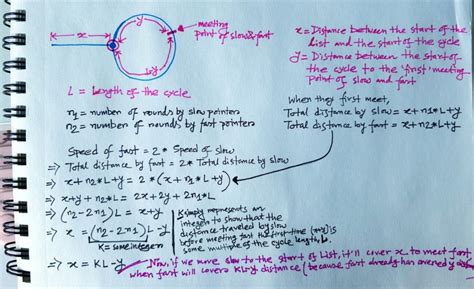 x
y
L-y
meeting
point of slow & fast
x = Distance between the start of the
list and the start of the cycle
y = Distance between the start of
the cycle to the 'first' meeting
point of slow and fast
L = Length of the cycle
n1 = number of rounds by slow pointers
n2 = number of rounds by fast pointers
When they first meet,
Total distance by slow = x + n1*L + y
Total distance by fast = x + n2*L + y
Speed of fast = 2 * Speed of slow
=> Total distance by fast = 2 * Total distance by slow
=> x + n2*L + y = 2*(x + n1*L + y)
=> x + y + n2*L = 2x + 2y + 2n1*L
=> (n2 - 2n1)L = x + y
=> x = (n2 - 2n1)L - y
K = some integer
K simply represents an
integer to show that the
distance traveled by slow
before meeting fast the first time (x+y) is
some multiple of the cycle length L.
=> x = KL - y
Now, if we move slow to the start of List, it'll cover x to meet fast,
when fast will cover KL-y distance (because fast already has covered y